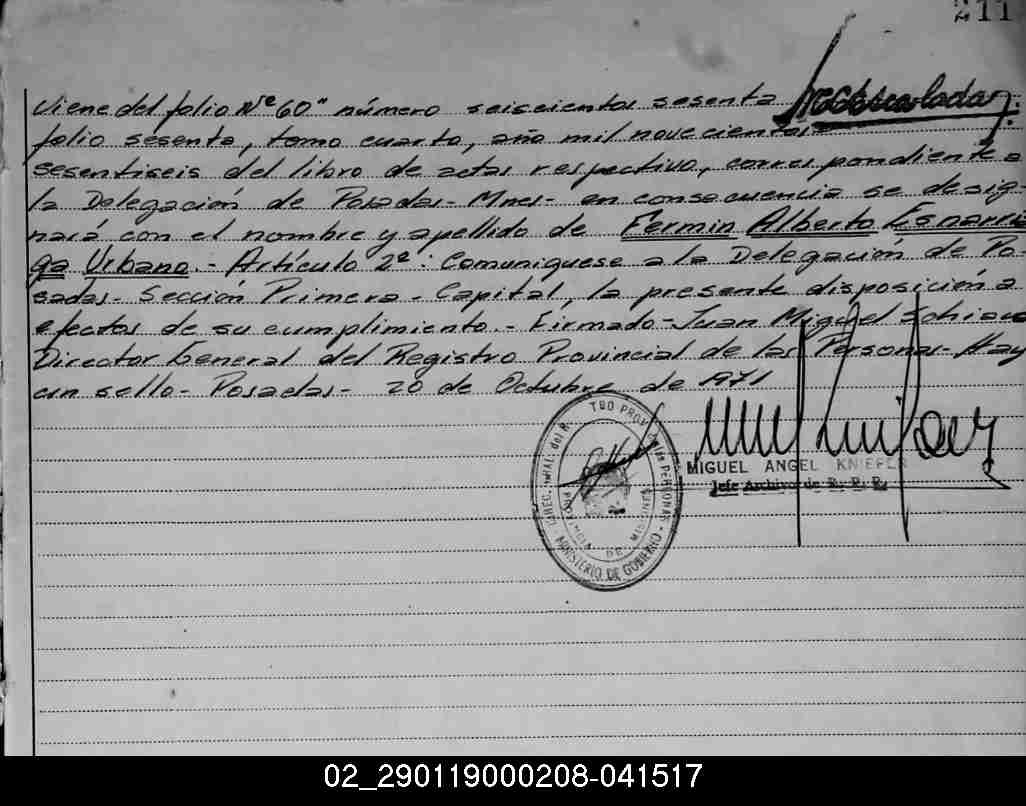 211
Viene del folio Nº 60" número seiscientos sesenta
folio sesenta, tomo cuarto, año mil novecientos
sesentiseis del libro de actas respectivo, correspondiente a
la Delegación de Posadas- Mnes- en consecuencia se desig-
nará con el nombre y apellido de Fermin Alberto Esnarri
ga Urbano.- Artículo 2º: Comuníquese a la Delegación de Po-
sadas- Sección Primera- Capital, la presente disposición a
efectos de su cumplimiento.- Firmado- Juan Miguel
Director General del Registro Provincial de las Personas- Hay
un sello- Posadas- 20 de Octubre de 1971
MIGUEL ANGEL KNIEFER
Jefe Archivo de R. P. P.
PROVINCIA DE MISIONES
MINISTERIO DE GOBIERNO
02_290119000208-041517